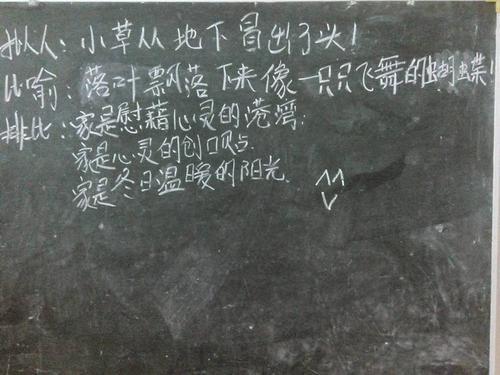 拟人：小草从地下冒出了头！
比喻：落叶飘落下来像一只只飞舞的蝴蝶！
排比：家是慰藉心灵的港湾.
家是心灵的创口贴.
家是冬日温暖的阳光.